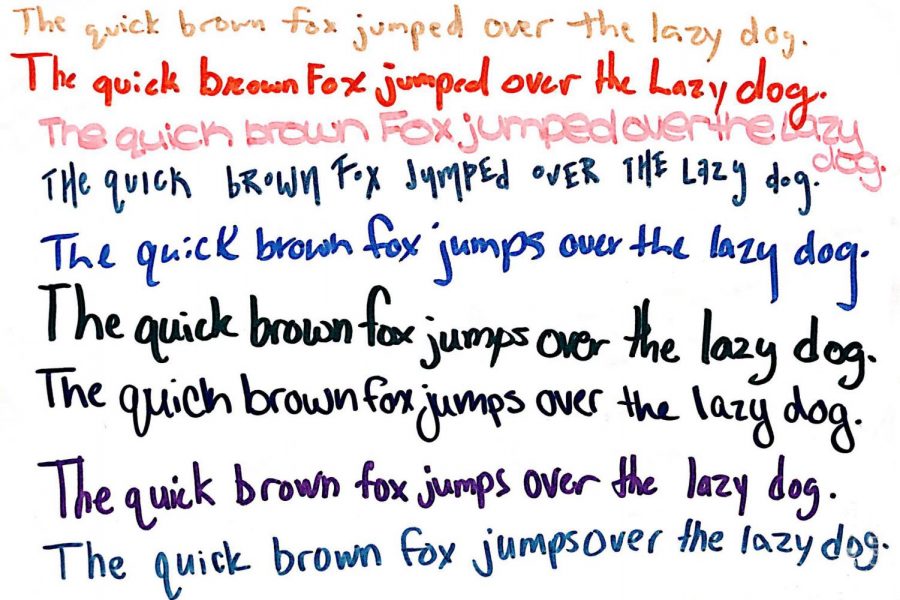 The quick brown fox jumped over the lazy dog.
The quick brown Fox jumped over the Lazy dog.
The quick brown Fox jumped over the Lazy
dog.
THe quick BROWN Fox JUMPED OVER THE LAzy dog.
The quick brown fox jumps over the lazy dog.
The quick brown fox jumps over the lazy dog.
The quick brown fox jumps over the lazy dog.
The quick brown fox jumps over the lazy dog.
The quick brown fox jumps over the lazy dog.